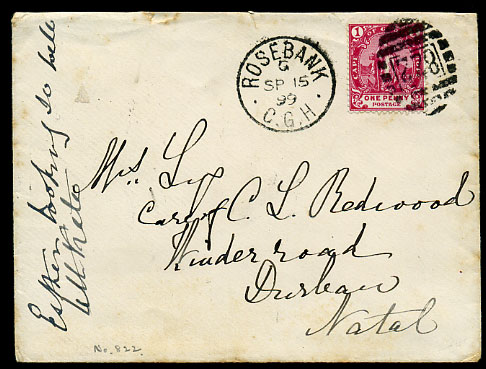 ROSEBANK
G
SP 15
99
C.G.H.
1
CAPE OF GOOD
ONE PENNY
POSTAGE
Mrs.
Care of C. L. Redwood
Winder road
Durban
Natal
looking so well
No. 822.